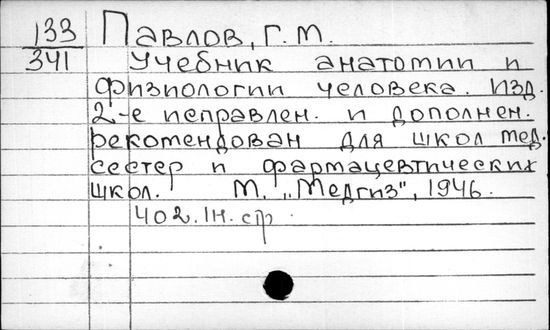 133 Павлов, Г. М.
341 Учебник анатомии и
физиологии человека. Изд.
2-е исправлен. и дополнен.
рекомендован для школ мед.
сестер и фармацевтических
школ. М. „Медгиз", 1946.
402.IH. стр.